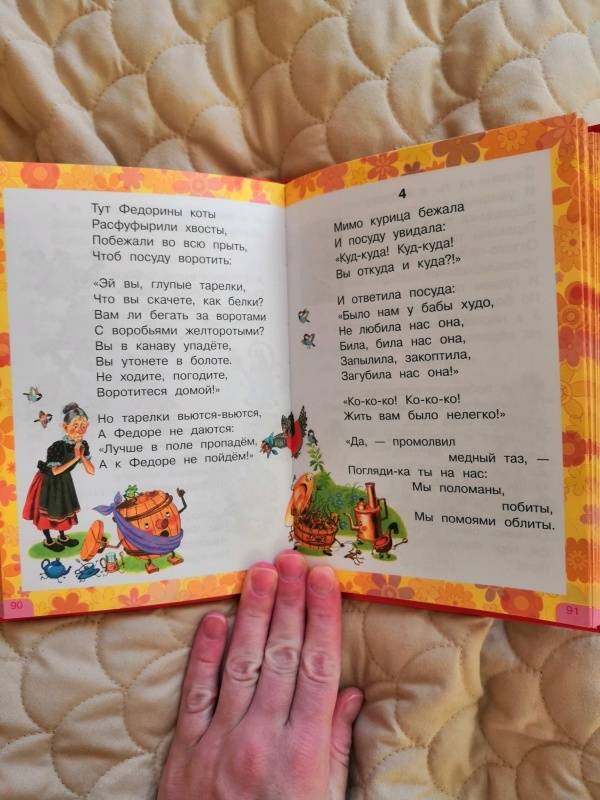 Тут Федорины коты
Расфуфырили хвосты,
Побежали во всю прыть,
Чтоб посуду воротить:
«Эй вы, глупые тарелки,
Что вы скачете, как белки?
Вам ли бегать за воротами
С воробьями желторотыми?
Вы в канаву упадёте,
Вы утонете в болоте.
Не ходите, погодите,
Воротитеся домой!»
Но тарелки вьются-вьются,
А Федоре не даются:
«Лучше в поле пропадём,
А к Федоре не пойдём!»
90
4
Мимо курица бежала
И посуду увидала:
«Куд-куда! Куд-куда!
Вы откуда и куда?!»
И ответила посуда:
«Было нам у бабы худо,
Не любила нас она,
Била, била нас она,
Запылила, закоптила,
Загубила нас она!»
«Ко-ко-ко! Ко-ко-ко!
Жить вам было нелегко!»
«Да, — промолвил
медный таз, —
Погляди-ка ты на нас:
Мы поломаны,
побиты,
Мы помоями облиты.
91